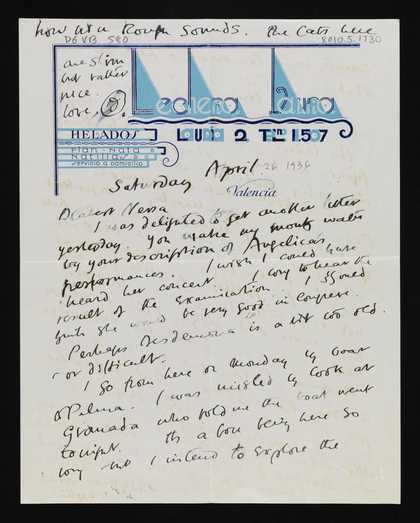 how at a Rough Sounds. The Cats here
D6 VB 580
8010.5.1730
are slim
but rather
nice.
love,
Lechera Laura
HELADOS
LURIA 2 Tno 1.57
Plan-Nata &
Natillas
Servicio a domicilio
Saturday April 26 1936
Valencia
Dearest Nessa
I was delighted to get another letter
yesterday. You make my mouth water
by your description of Angelicas
performances. I wish I could have
heard her concert. I long to hear the
result of the examination. I should
think she would be very good in Congreve.
Perhaps Desdemona is a bit too old.
or difficult.
I go from here on Monday by boat
to Palma. I was misled by Cook at
Granada who told me the boat went
tonight. Its a bore being here so
long but I intend to explore the